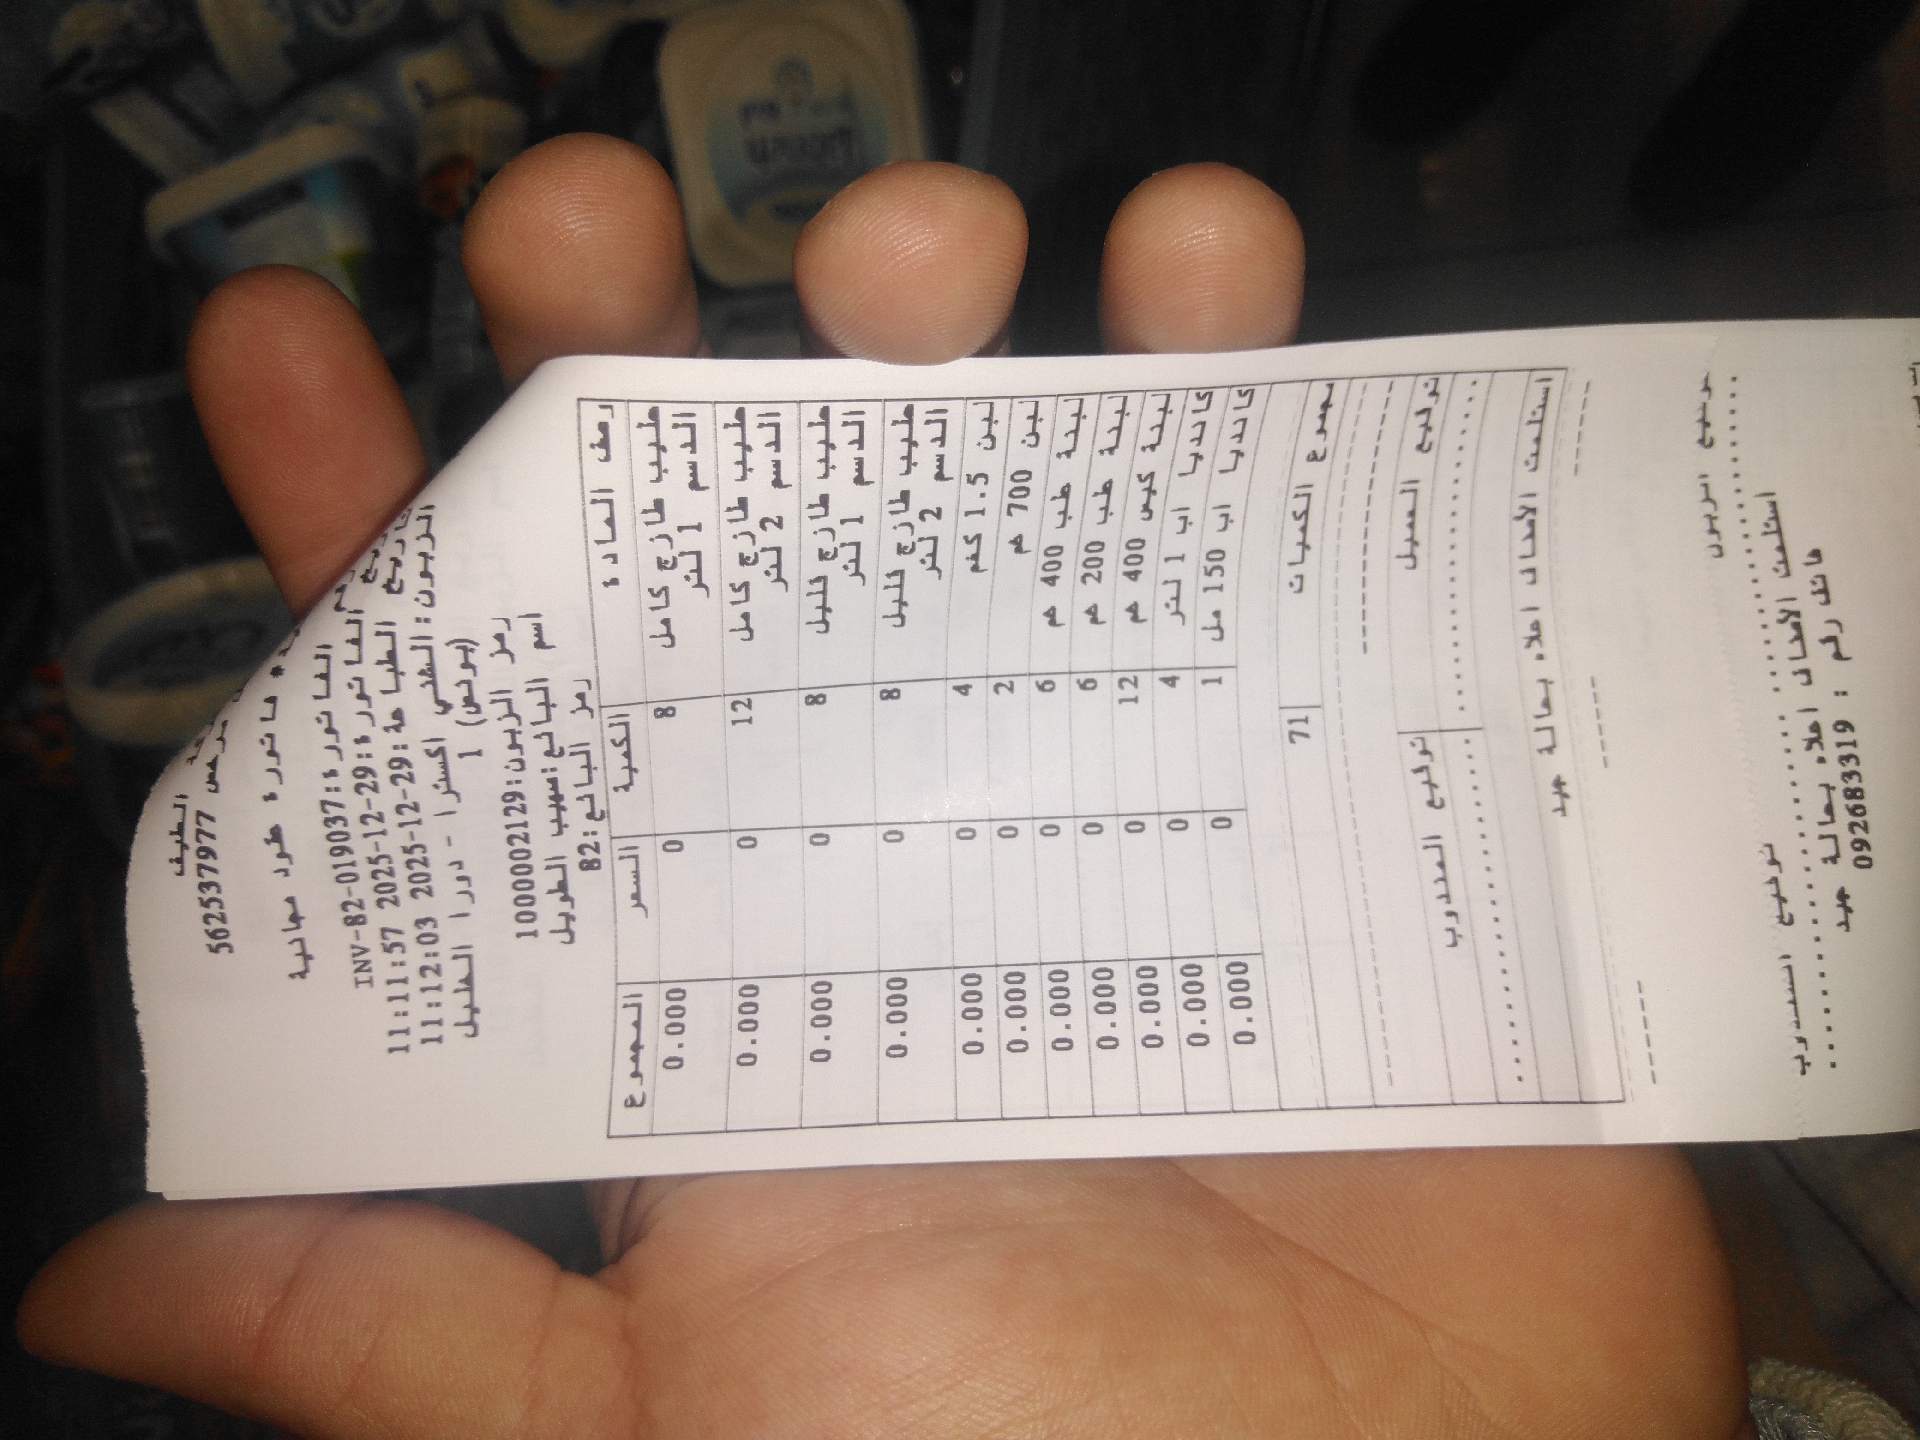 الطيف
مرخص 562537977
فاتورة طرود مجانية
الفاتورة: INV-82-019037
تاريخ الفاتورة: 2025-12-29 11:11:57
تاريخ الطباعة: 2025-12-29 11:12:03
الزبون: الشني اكسترا - دورا الخليل
(بونص) 1
رمز الزبون: 1000002129
اسم البائع: صهيب الطويل
رمز البائع: 82
وصف المادة الكمية السعر المجموع
حليب طازج كامل 8 0 0.000
الدسم 1 لتر
حليب طازج كامل 12 0 0.000
الدسم 2 لتر
حليب طازج قليل 8 0 0.000
الدسم 1 لتر
حليب طازج قليل 8 0 0.000
الدسم 2 لتر
لبن 1.5 كغم 4 0 0.000
لبن 700 غم 2 0 0.000
لبنة علب 400 غم 6 0 0.000
لبنة علب 200 غم 6 0 0.000
لبنة كيس 400 غم 12 0 0.000
كانديا اب 1 لتر 4 0 0.000
كانديا اب 150 مل 1 0 0.000
مجموع الكميات 71
توقيع العميل توقيع المندوب
استلمت الأصناف اعلاه بحالة جيد
توقيع الزبون
توقيع المندوب
استلمت الأصناف اعلاه بحالة جيد
هاتف رقم : 092683319